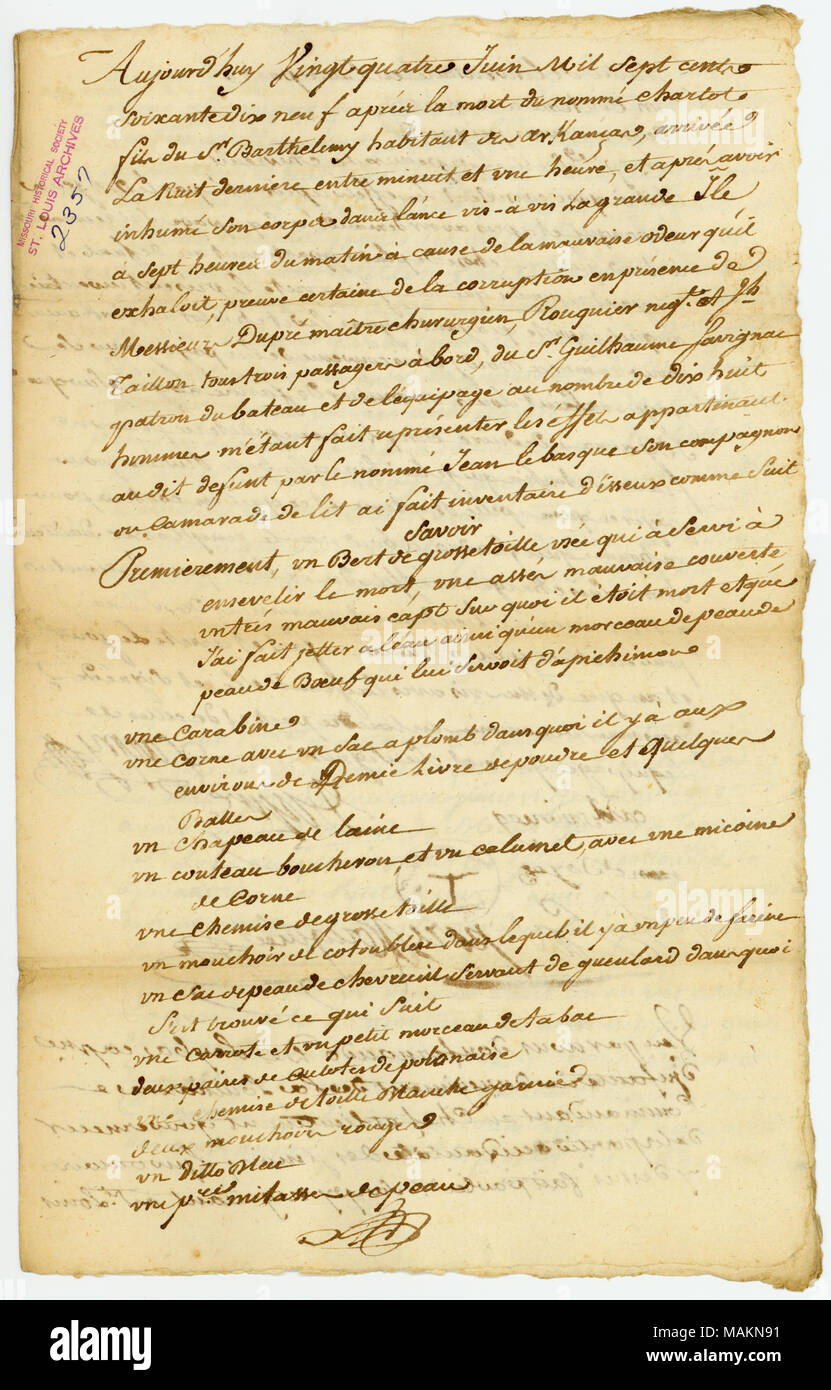 MISSOURI HISTORICAL SOCIETY
ST. LOUIS ARCHIVES
2357
Aujourd'huy Vingt quatre Juin Mil sept cent
soixante dix neuf aprèz la mort du nommé charlot
fils du Sr. Barthelemy habitant des arKanças, arrivée
La Nuit derniere entre minuit et vne heure, et aprés avoir
inhumé son corps dans lánce vis-à vis La grande Île
à sept heures du matin à cause de la mauvaise odeur qu'il
exhaloit, preuve certaine de la corruption en présence de
Messieurs Dupré maître chirurgien, Rouquier negt. et Jh
Taillon tous trois passagers à bord, du Sr. Guilhaume Savignac
patron du bateau et de léquipage au nombre de dix huit
hommes m'étant fait représenter les éffets appartenant
au dit defunt par le nommé Jean le basque son compagnon
ou Camarade de lit ai fait inventaire d'iseux comme Suit
Savoir
Premierement, vn Bert de grosse toille usée qui à Servi à
ensevelir le mort, vne assés mauvaise couverte
vn tres mauvais capt Sur quoi il étoit mort et que
J'ai fait jetter a léau ainsi qu'un morceau de peau de
peau de Bœuf qui lui Servoit d'apichimon
vne Carabine
vne Corne avec vn Sac a plomb dans quoi il y à aux
environs de Demie Livre de poudre et Quelques
Balles
vn Chapeau de laine
vn couteau boucheron, et vn calumet, avec vne micoine
de Corne
vne chemise de grosse toille
vn mouchoir de cotou bleu dans lequel il y à vn peu de farine
vn Sac de peau de chevreuil Servant de gueulard dans quoi
S'est trouvé ce qui Suit
vne Carrote et vn petit morceau de tabac
deux paires de Culotes de polonaise
vne chemise de toille Blanche garnie
deux mouchoirs rouges
vn ditto Bleu
vne pre mitasses de peau
alamy
Image ID: MAKN91
www.alamy.com